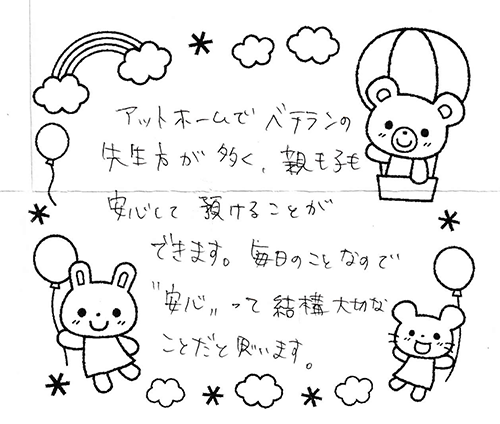 アットホームで ベテランの
先生方が 多く、親も子も
安心して 預けることが
できます。毎日のことなので
〝安心〟って 結構 大切な
ことだと思います。